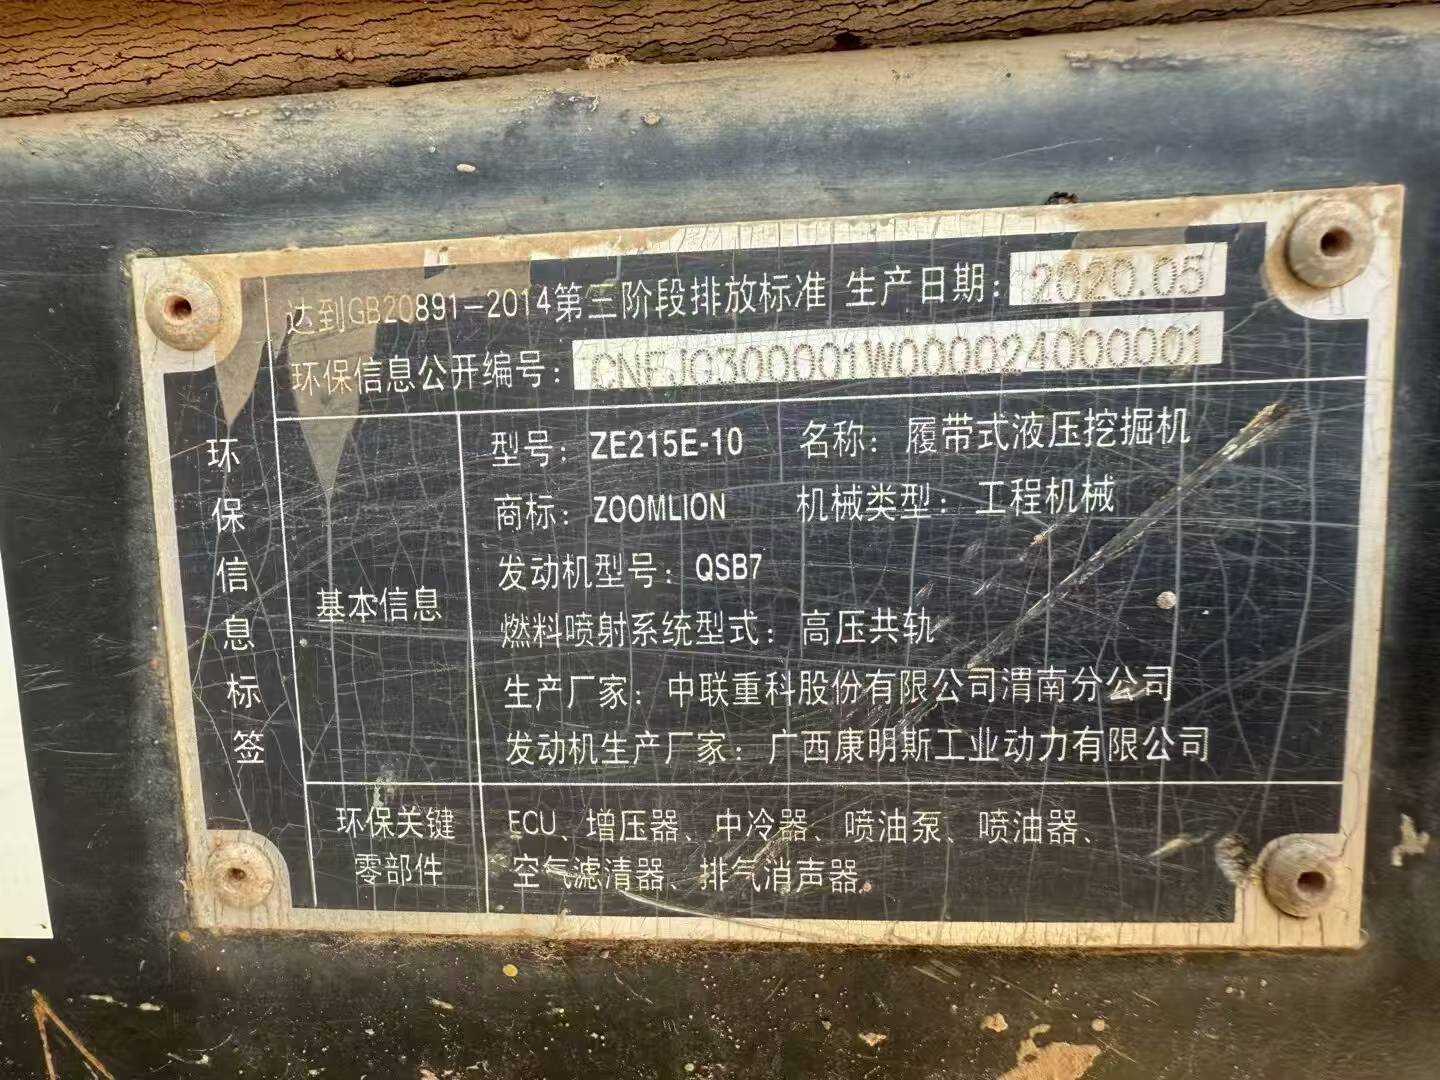 达到GB20891-2014第三阶段排放标准 生产日期：2020.05
环保信息公开编号：CNFJG300001W000024000001
环保信息标签
基本信息
型号：ZE215E-10 名称：履带式液压挖掘机
商标：ZOOMLION 机械类型：工程机械
发动机型号：QSB7
燃料喷射系统型式：高压共轨
生产厂家：中联重科股份有限公司渭南分公司
发动机生产厂家：广西康明斯工业动力有限公司
环保关键
零部件
ECU、增压器、中冷器、喷油泵、喷油器、
空气滤清器、排气消声器。